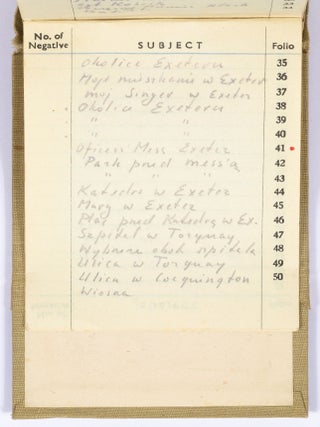 No. of Negative SUBJECT Folio
Okolice Exeteru 35
Moje mieszkanie w Exeter 36
moj Singer w Exeter 37
Okolice Exeteru 38
" " 39
" " 40
Oficers Mess Exeter 41
Park pred mess'a 42
" " " 43
Katedra w Exeter 44
Mury w Exeter 45
Plac pred Katedrą w Ex. 46
Szpital w Torquay 47
Wybrzeże obok szpitala 48
Ulica w Torquay 49
Ulica w Cockington 50
Wiosna